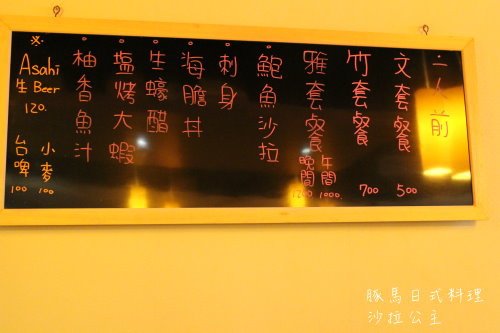 二人前
文套餐 500
竹套餐 700
雅套餐 午間 1000. 晚間 1200
鮑魚沙拉
刺身
海膽丼
生蠔醋
塩烤大蝦
柚香魚汁
※ Asahi
生Beer
120.
小麥 100
台啤 100
豚馬日式料理
沙拉公主